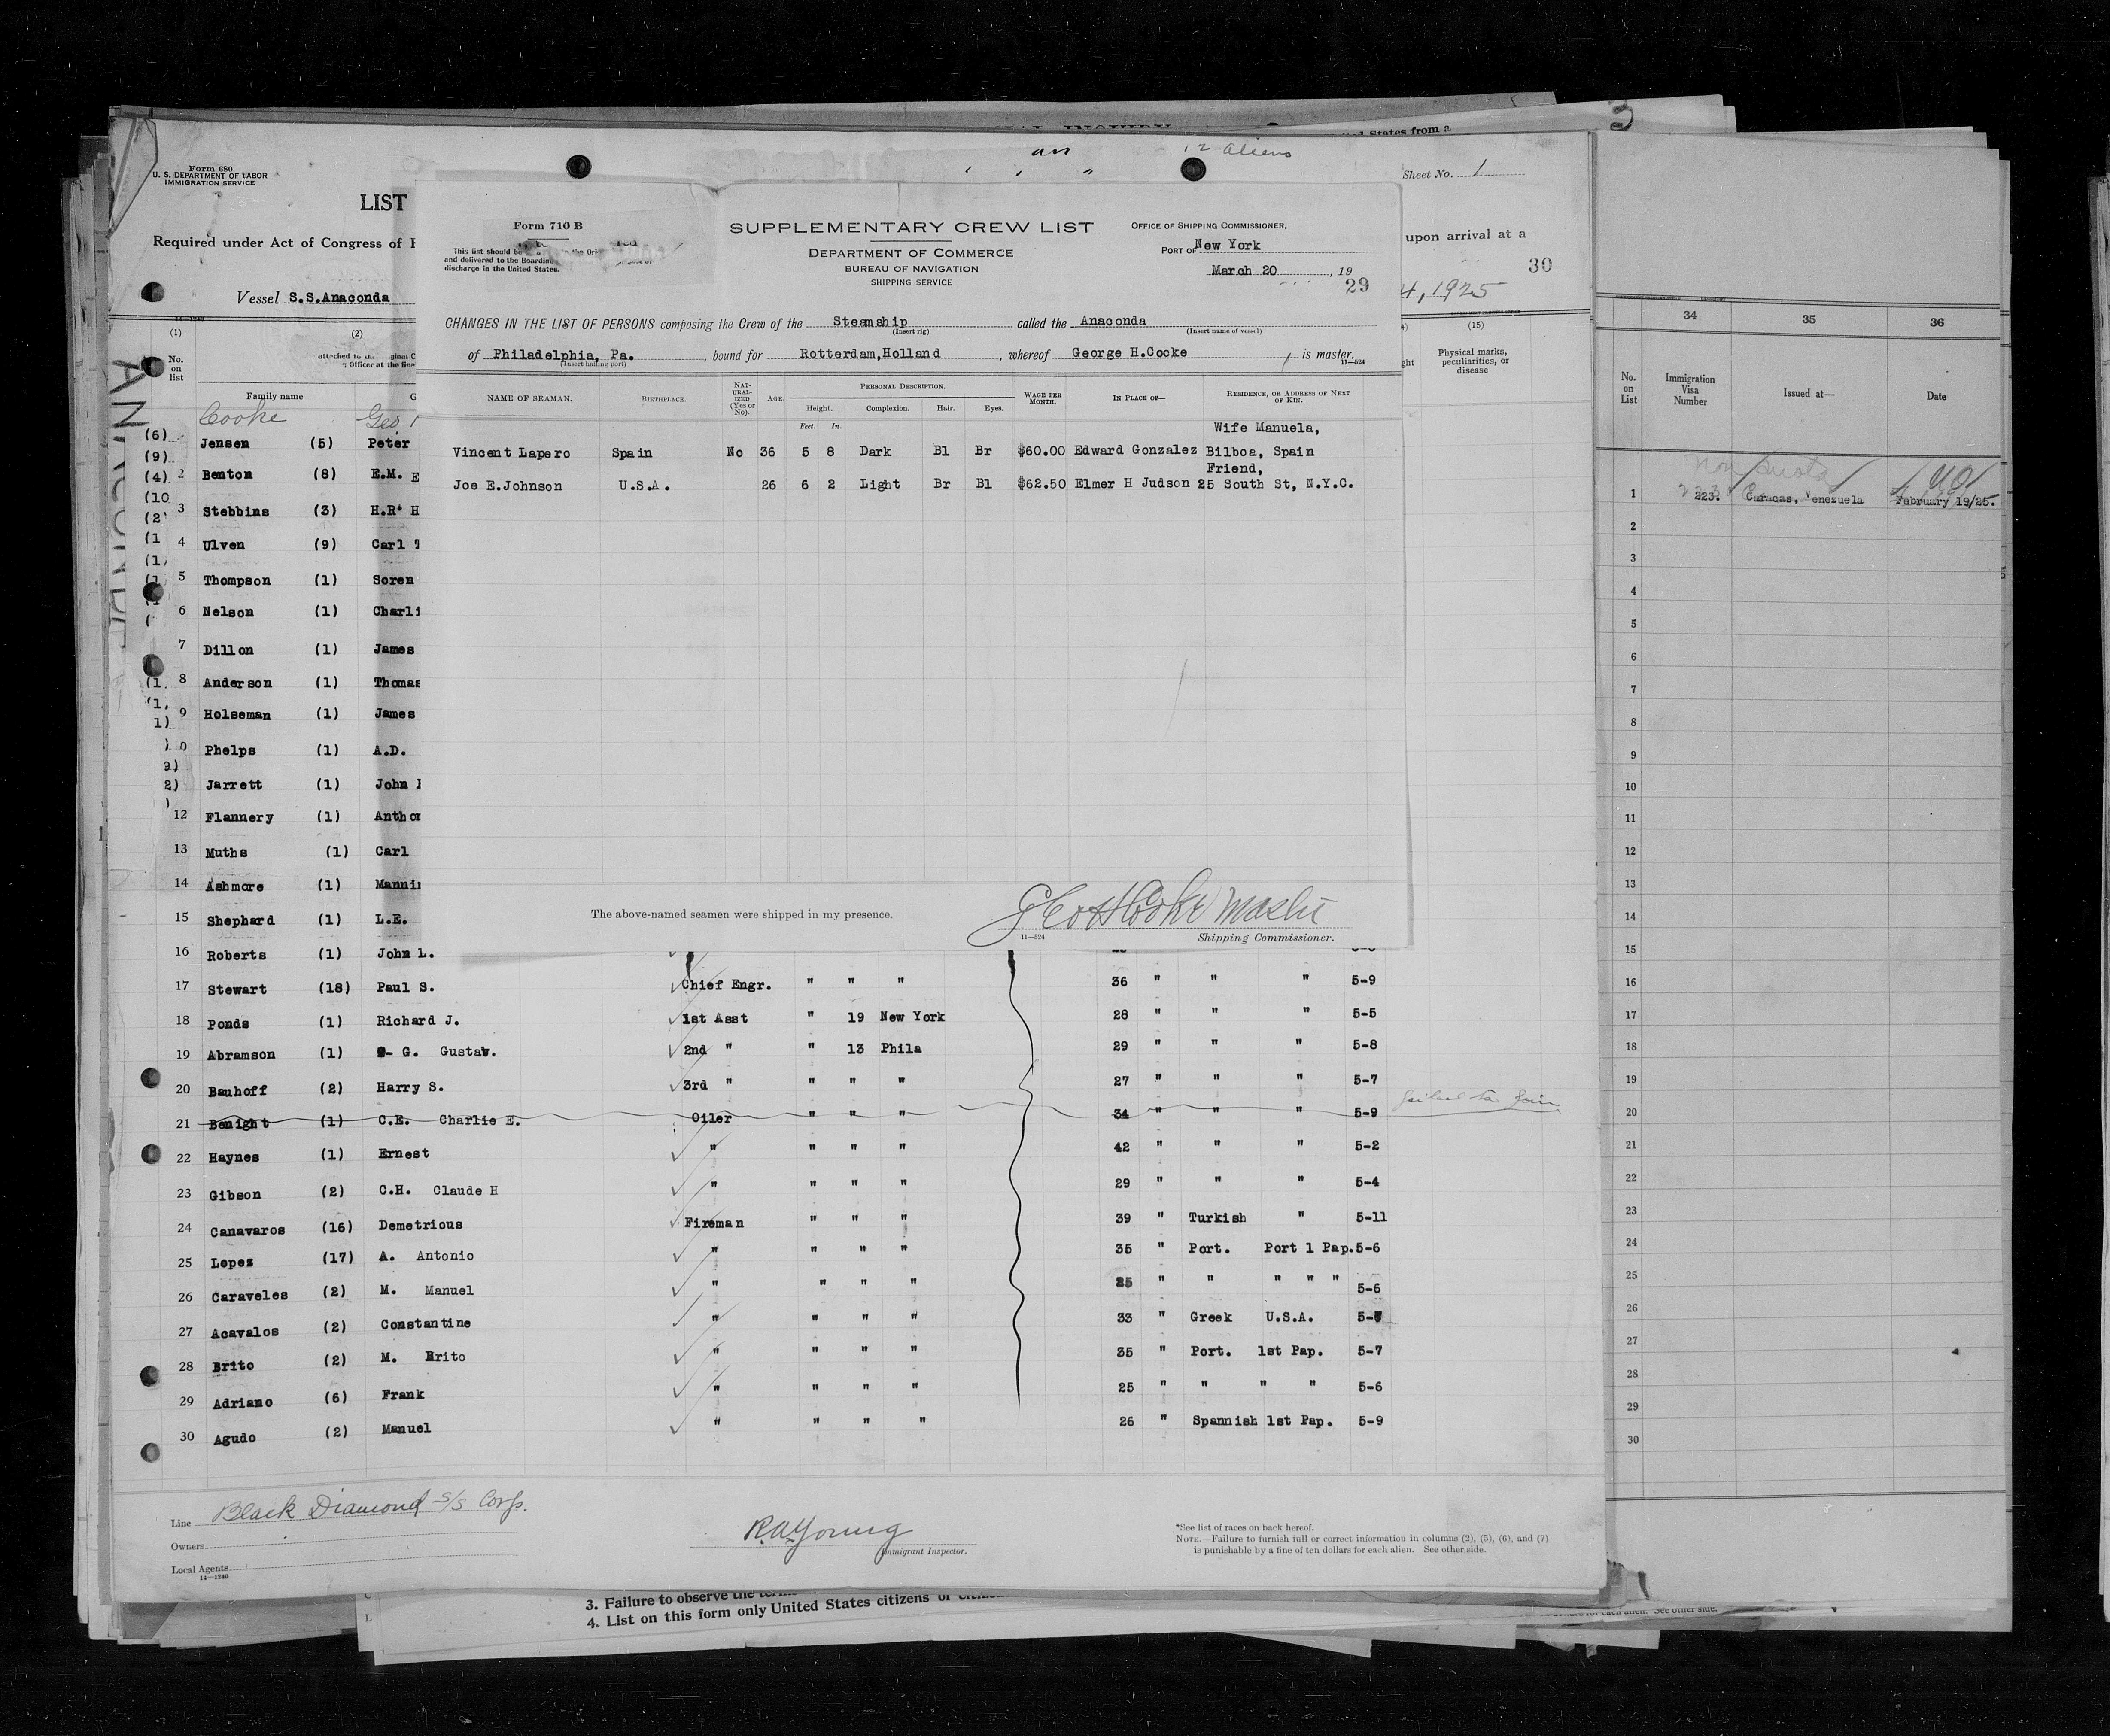 Form 680
U. S. DEPARTMENT OF LABOR
IMMIGRATION SERVICE
LIST
Required under Act of Congress of
Vessel S.S.Anaconda
12 Aliens
Sheet No. 1
upon arrival at a
30
4, 1925
Form 710 B
This list should be
and delivered to the Boarding
discharge in the United States.
SUPPLEMENTARY CREW LIST
DEPARTMENT OF COMMERCE
BUREAU OF NAVIGATION
SHIPPING SERVICE
OFFICE OF SHIPPING COMMISSIONER,
PORT OF New York
March 20, 19
29
CHANGES IN THE LIST OF PERSONS composing the Crew of the Steamship called the Anaconda
(Insert rig) (Insert name of vessel)
of Philadelphia, Pa., bound for Rotterdam,Holland, whereof George H.Cooke, is master.
(Insert hailing port) 11—524
NAME OF SEAMAN. BIRTHPLACE. NAT-URAL-IZED (Yes or No). AGE. PERSONAL DESCRIPTION. WAGE PER MONTH. IN PLACE OF— RESIDENCE, OR ADDRESS OF NEXT OF KIN.
Height. Complexion. Hair. Eyes.
Feet. In.
Wife Manuela,
Vincent Lapero Spain No 36 5 8 Dark Bl Br $60.00 Edward Gonzalez Bilboa, Spain
Friend,
Joe E.Johnson U.S.A. 26 6 2 Light Br Bl $62.50 Elmer H Judson 25 South St, N.Y.C.
The above-named seamen were shipped in my presence.
Geo H Cooke Master
11—524 Shipping Commissioner.
(1) (2)
No. on list
Family name
Cooke Geo
Jensen (5) Peter
2 Benton (8) E.M. E
3 Stebbins (3) H.R. H
4 Ulven (9) Carl
5 Thompson (1) Soren
6 Nelson (1) Charli
7 Dillon (1) James
8 Anderson (1) Thomas
9 Holseman (1) James
0 Phelps (1) A.D.
Jarrett (1) John
12 Flannery (1) Anthon
13 Muths (1) Carl
14 Ashmore (1) Mannin
15 Shephard (1) L.E.
16 Roberts (1) John L.
17 Stewart (18) Paul S. Chief Engr. " " " 36 " " " 5-9
18 Ponds (1) Richard J. 1st Asst " 19 New York 28 " " " 5-5
19 Abramson (1) G. Gustav. 2nd " " 13 Phila 29 " " " 5-8
20 Bauhoff (2) Harry S. 3rd " " " " 27 " " " 5-7
21 Benight (1) C.E. Charlie E. Oiler " " " 34 " " " 5-9 failed to join
22 Haynes (1) Ernest " " " " 42 " " " 5-2
23 Gibson (2) C.H. Claude H " " " " 29 " " " 5-4
24 Canavaros (16) Demetrious Fireman " " " 39 " Turkish " 5-11
25 Lopez (17) A. Antonio " " " " 35 " Port. Port 1 Pap. 5-6
26 Caraveles (2) M. Manuel " " " " 25 " " " " " 5-6
27 Acavalos (2) Constantine " " " " 33 " Greek U.S.A. 5-7
28 Brito (2) M. Brito " " " " 35 " Port. 1st Pap. 5-7
29 Adriano (6) Frank " " " " 25 " " " " 5-6
30 Agudo (2) Manuel " " " " 26 " Spannish 1st Pap. 5-9
(15)
Physical marks, peculiarities, or disease
Line Black Diamond S/S Corp.
Owners
Local Agents
14—1240
R.A. Young
Immigrant Inspector.
*See list of races on back hereof.
NOTE.—Failure to furnish full or correct information in columns (2), (5), (6), and (7)
is punishable by a fine of ten dollars for each alien. See other side.
3. Failure to observe the terms
4. List on this form only United States citizens or
34 35 36
No. on List Immigration Visa Number Issued at— Date
Non quota
1 223. Caracas, Venezuela February 19/25.
2
3
4
5
6
7
8
9
10
11
12
13
14
15
16
17
18
19
20
21
22
23
24
25
26
27
28
29
30